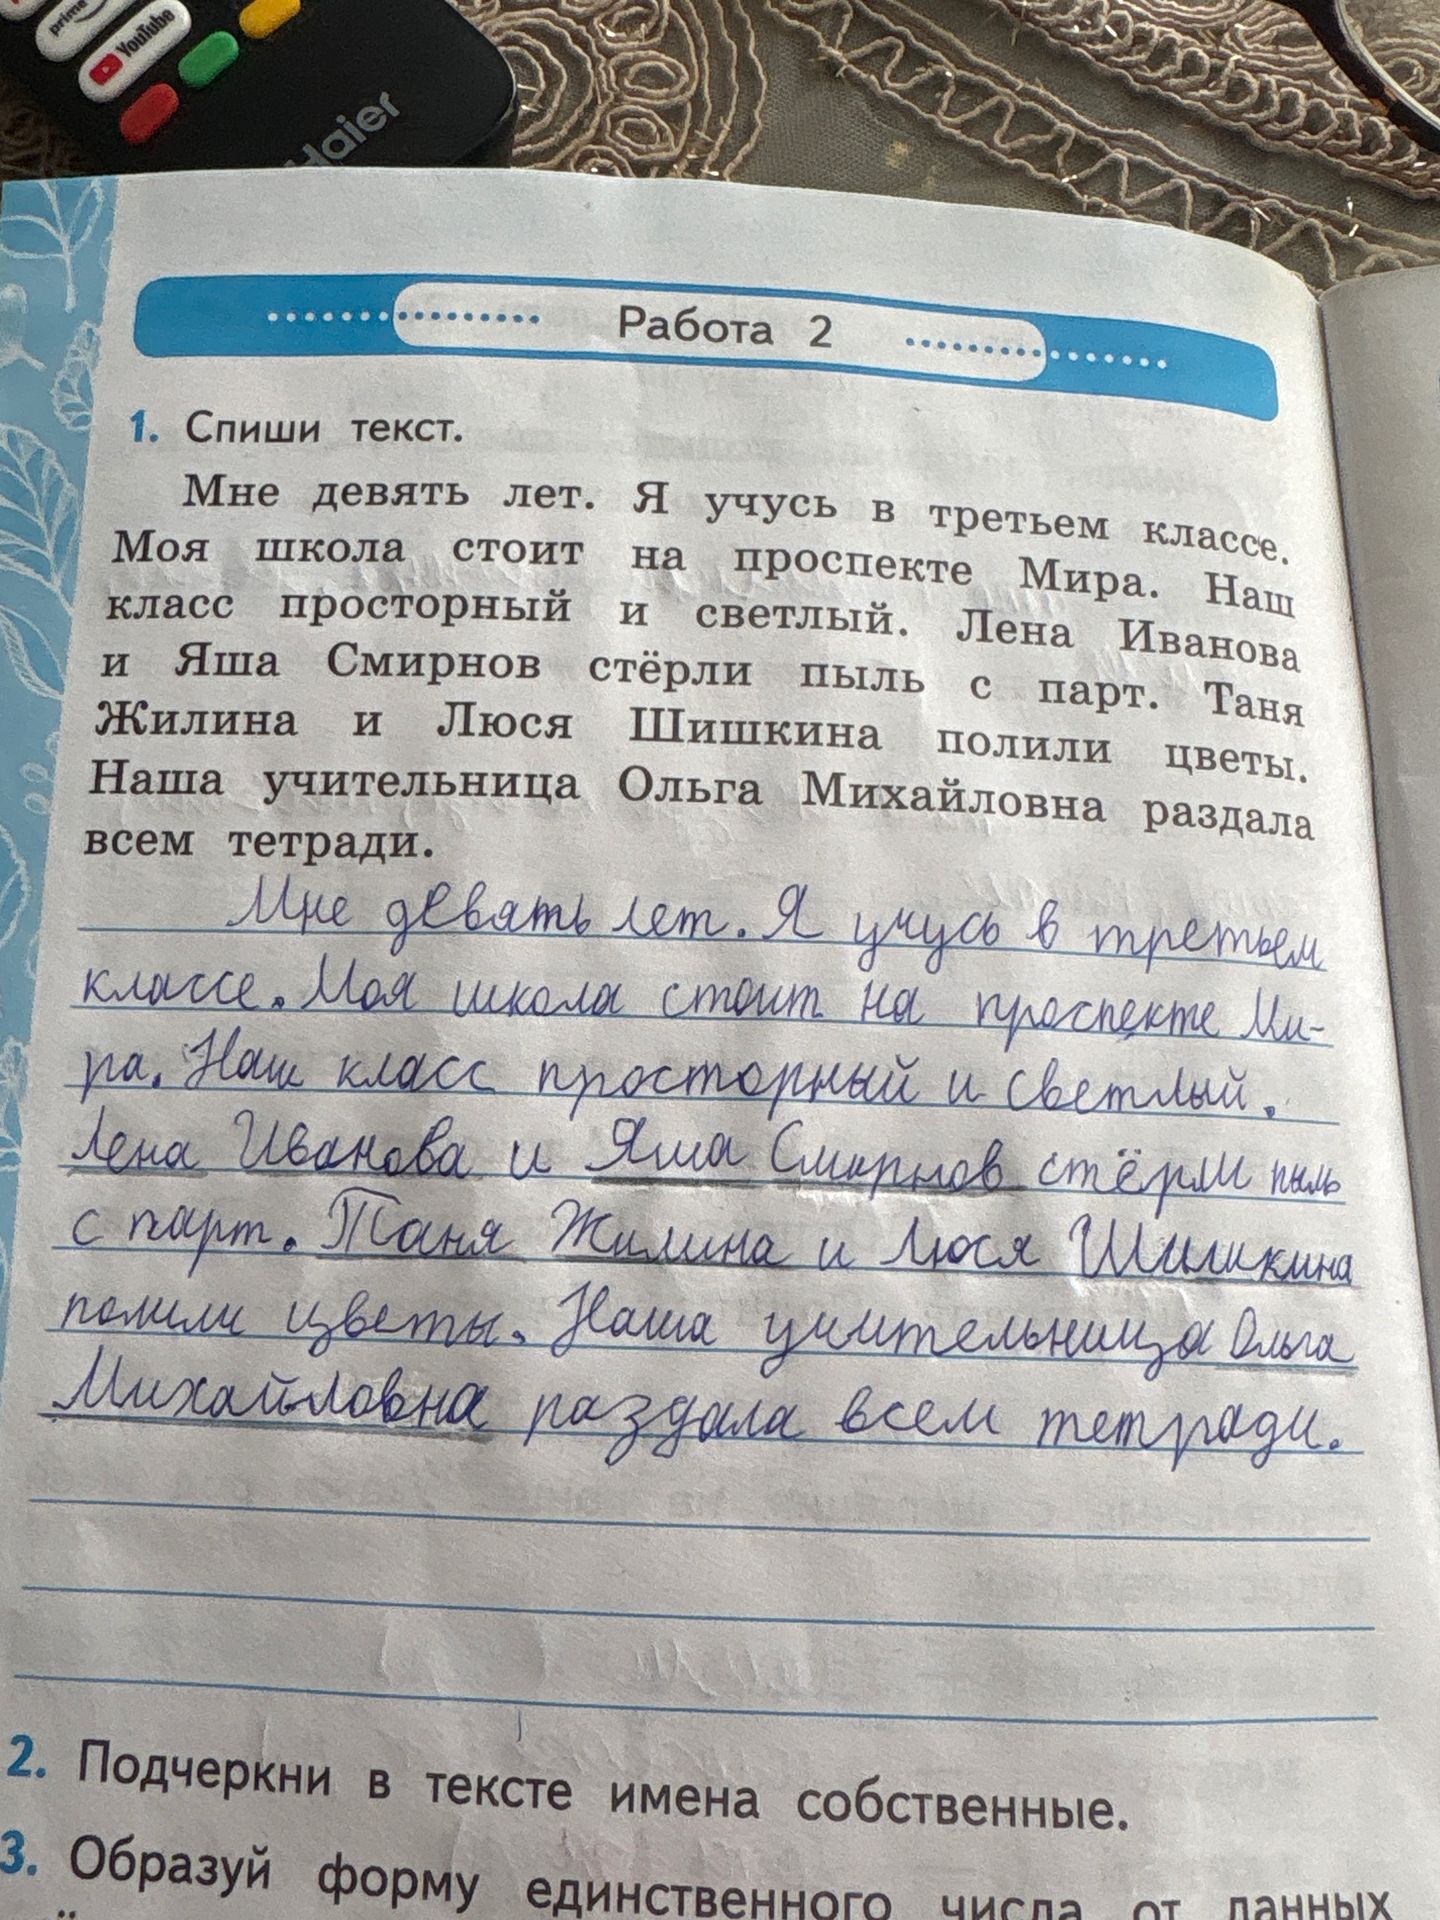 prime
YouTube
Haier
Работа 2
1. Спиши текст.
Мне девять лет. Я учусь в третьем классе.
Моя школа стоит на проспекте Мира. Наш
класс просторный и светлый. Лена Иванова
и Яша Смирнов стёрли пыль с парт. Таня
Жилина и Люся Шишкина полили цветы.
Наша учительница Ольга Михайловна раздала
всем тетради.
Мне девять лет. Я учусь в третьем
классе. Моя школа стоит на проспекте Ми-
ра. Наш класс просторный и светлый.
Лена Иванова и Яша Смирнов стёрли пыль
с парт. Таня Жилина и Люся Шишкина
полили цветы. Наша учительница Ольга
Михайловна раздала всем тетради.
2. Подчеркни в тексте имена собственные.
3. Образуй форму единственного числа от данных